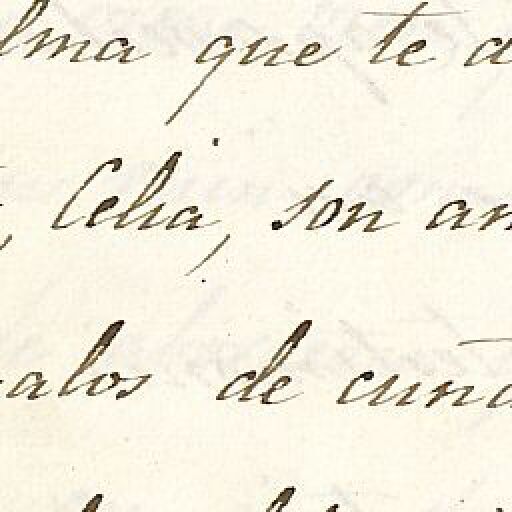 lma que te a
, Celia, son an
alos de cuña